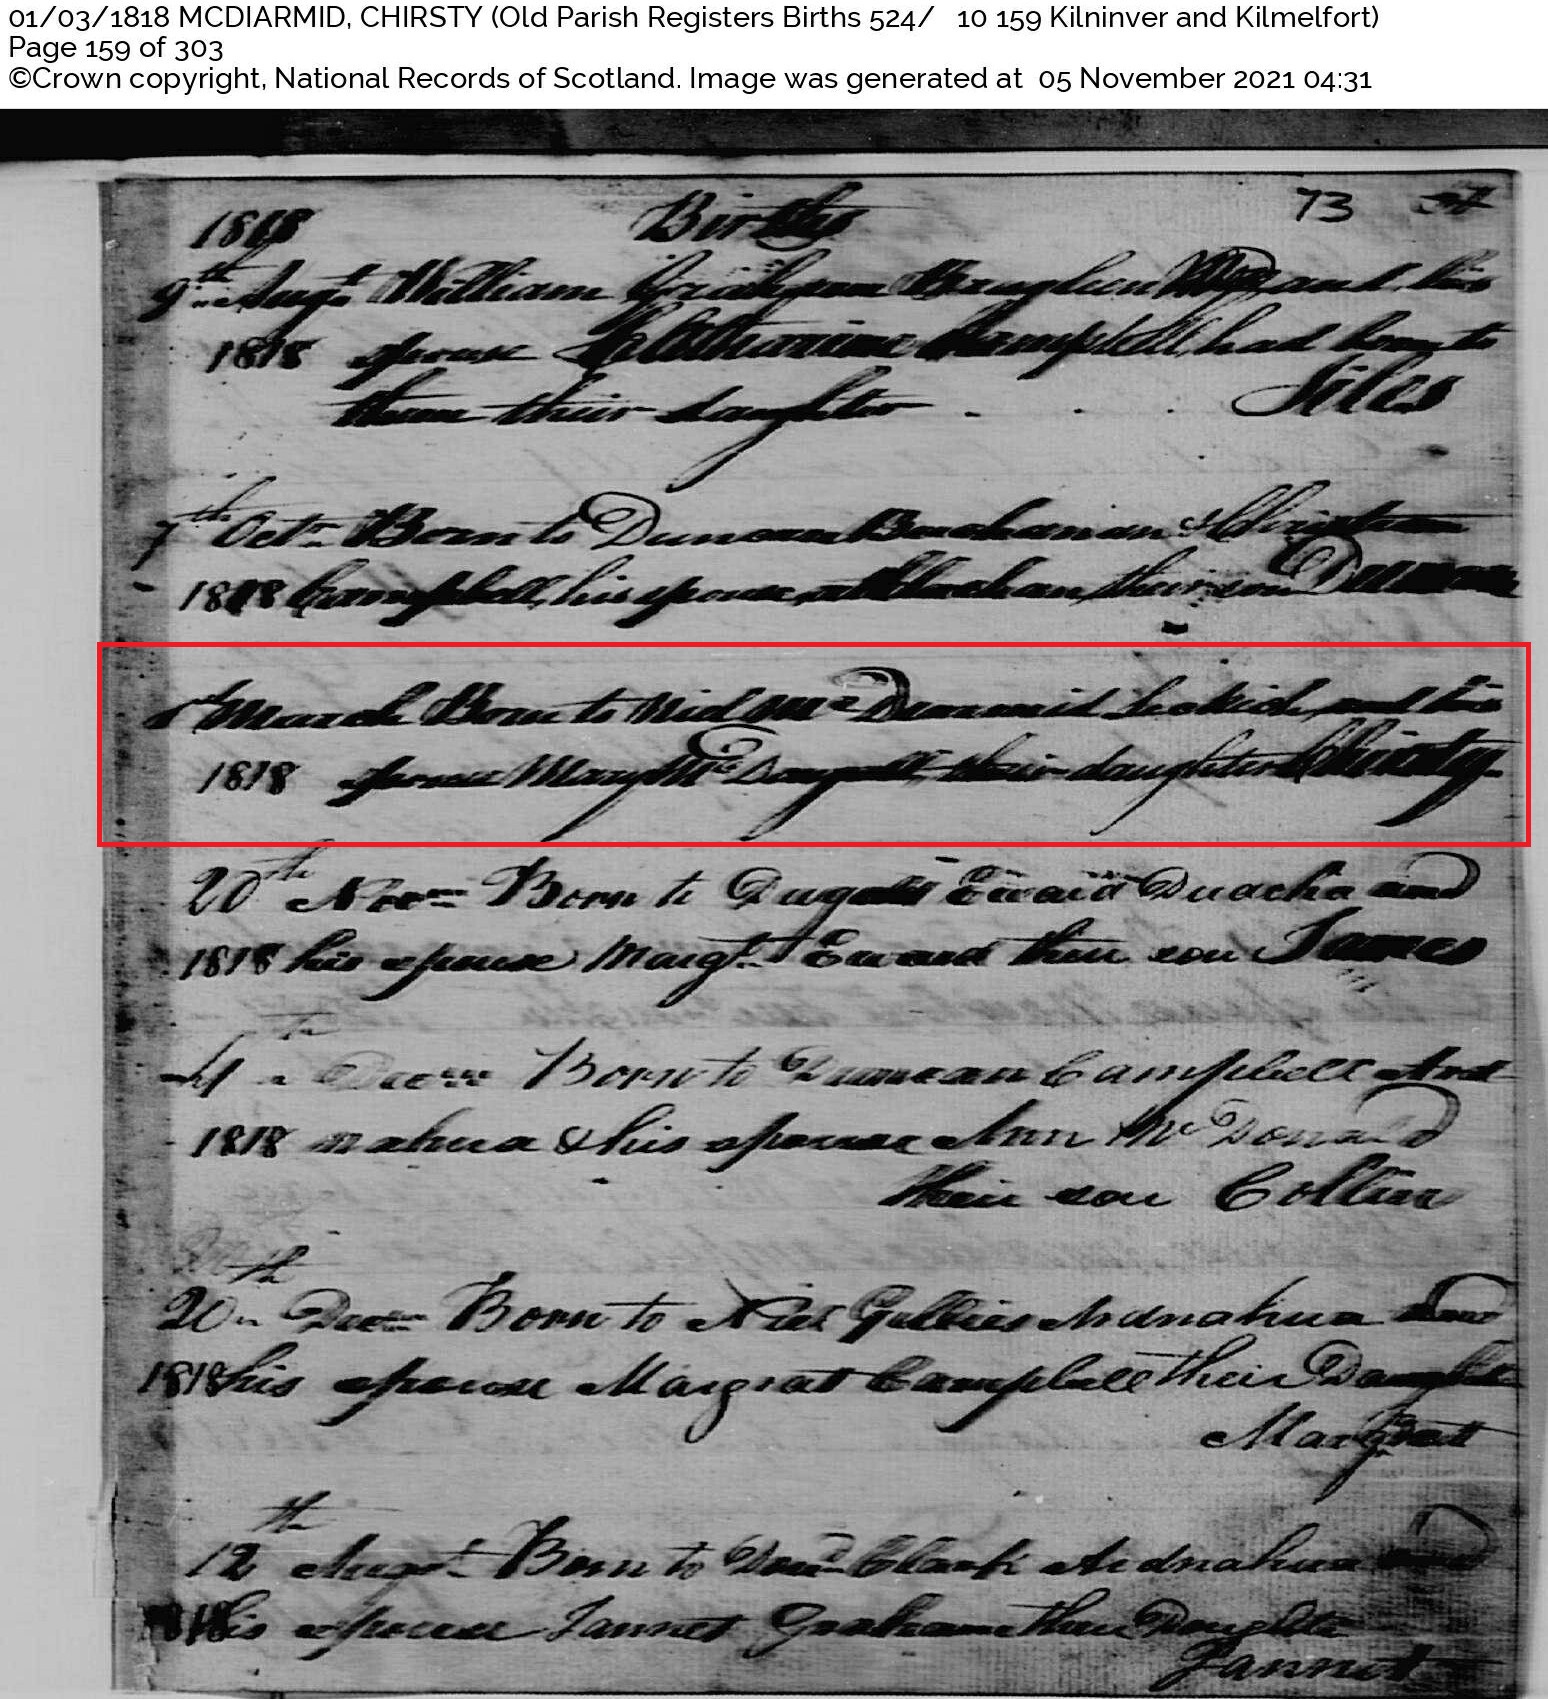 01/03/1818 MCDIARMID, CHIRSTY (Old Parish Registers Births 524/ 10 159 Kilninver and Kilmelfort)
Page 159 of 303
©Crown copyright, National Records of Scotland. Image was generated at 05 November 2021 04:31
1818 Births 73
9th Augt William Graham and his
1818 spouse Campbell had born to
them their daughter Siles
7th Octr Born to Duncan Buchanan & Christian
1818 Campbell his spouse their son Duncan
1st March Born to Mc Dearmid and his
1818 spouse Mary Mc Dougall their daughter Chirsty
20th Novr Born to Dugald Duacha and
1818 his spouse Margt their son James
4th Decr Born to Duncan Campbell Ard
1818 nahua & his spouse Ann Mc Donald
their son Collin
20th Decr Born to Niel Gillies Ardnahua and
1818 his spouse Margrat Campbell their Daughter
Margrat
12th Augt Born to Clark Ardnahua and
1818 his spouse Jannet Graham their Daughter
Jannet